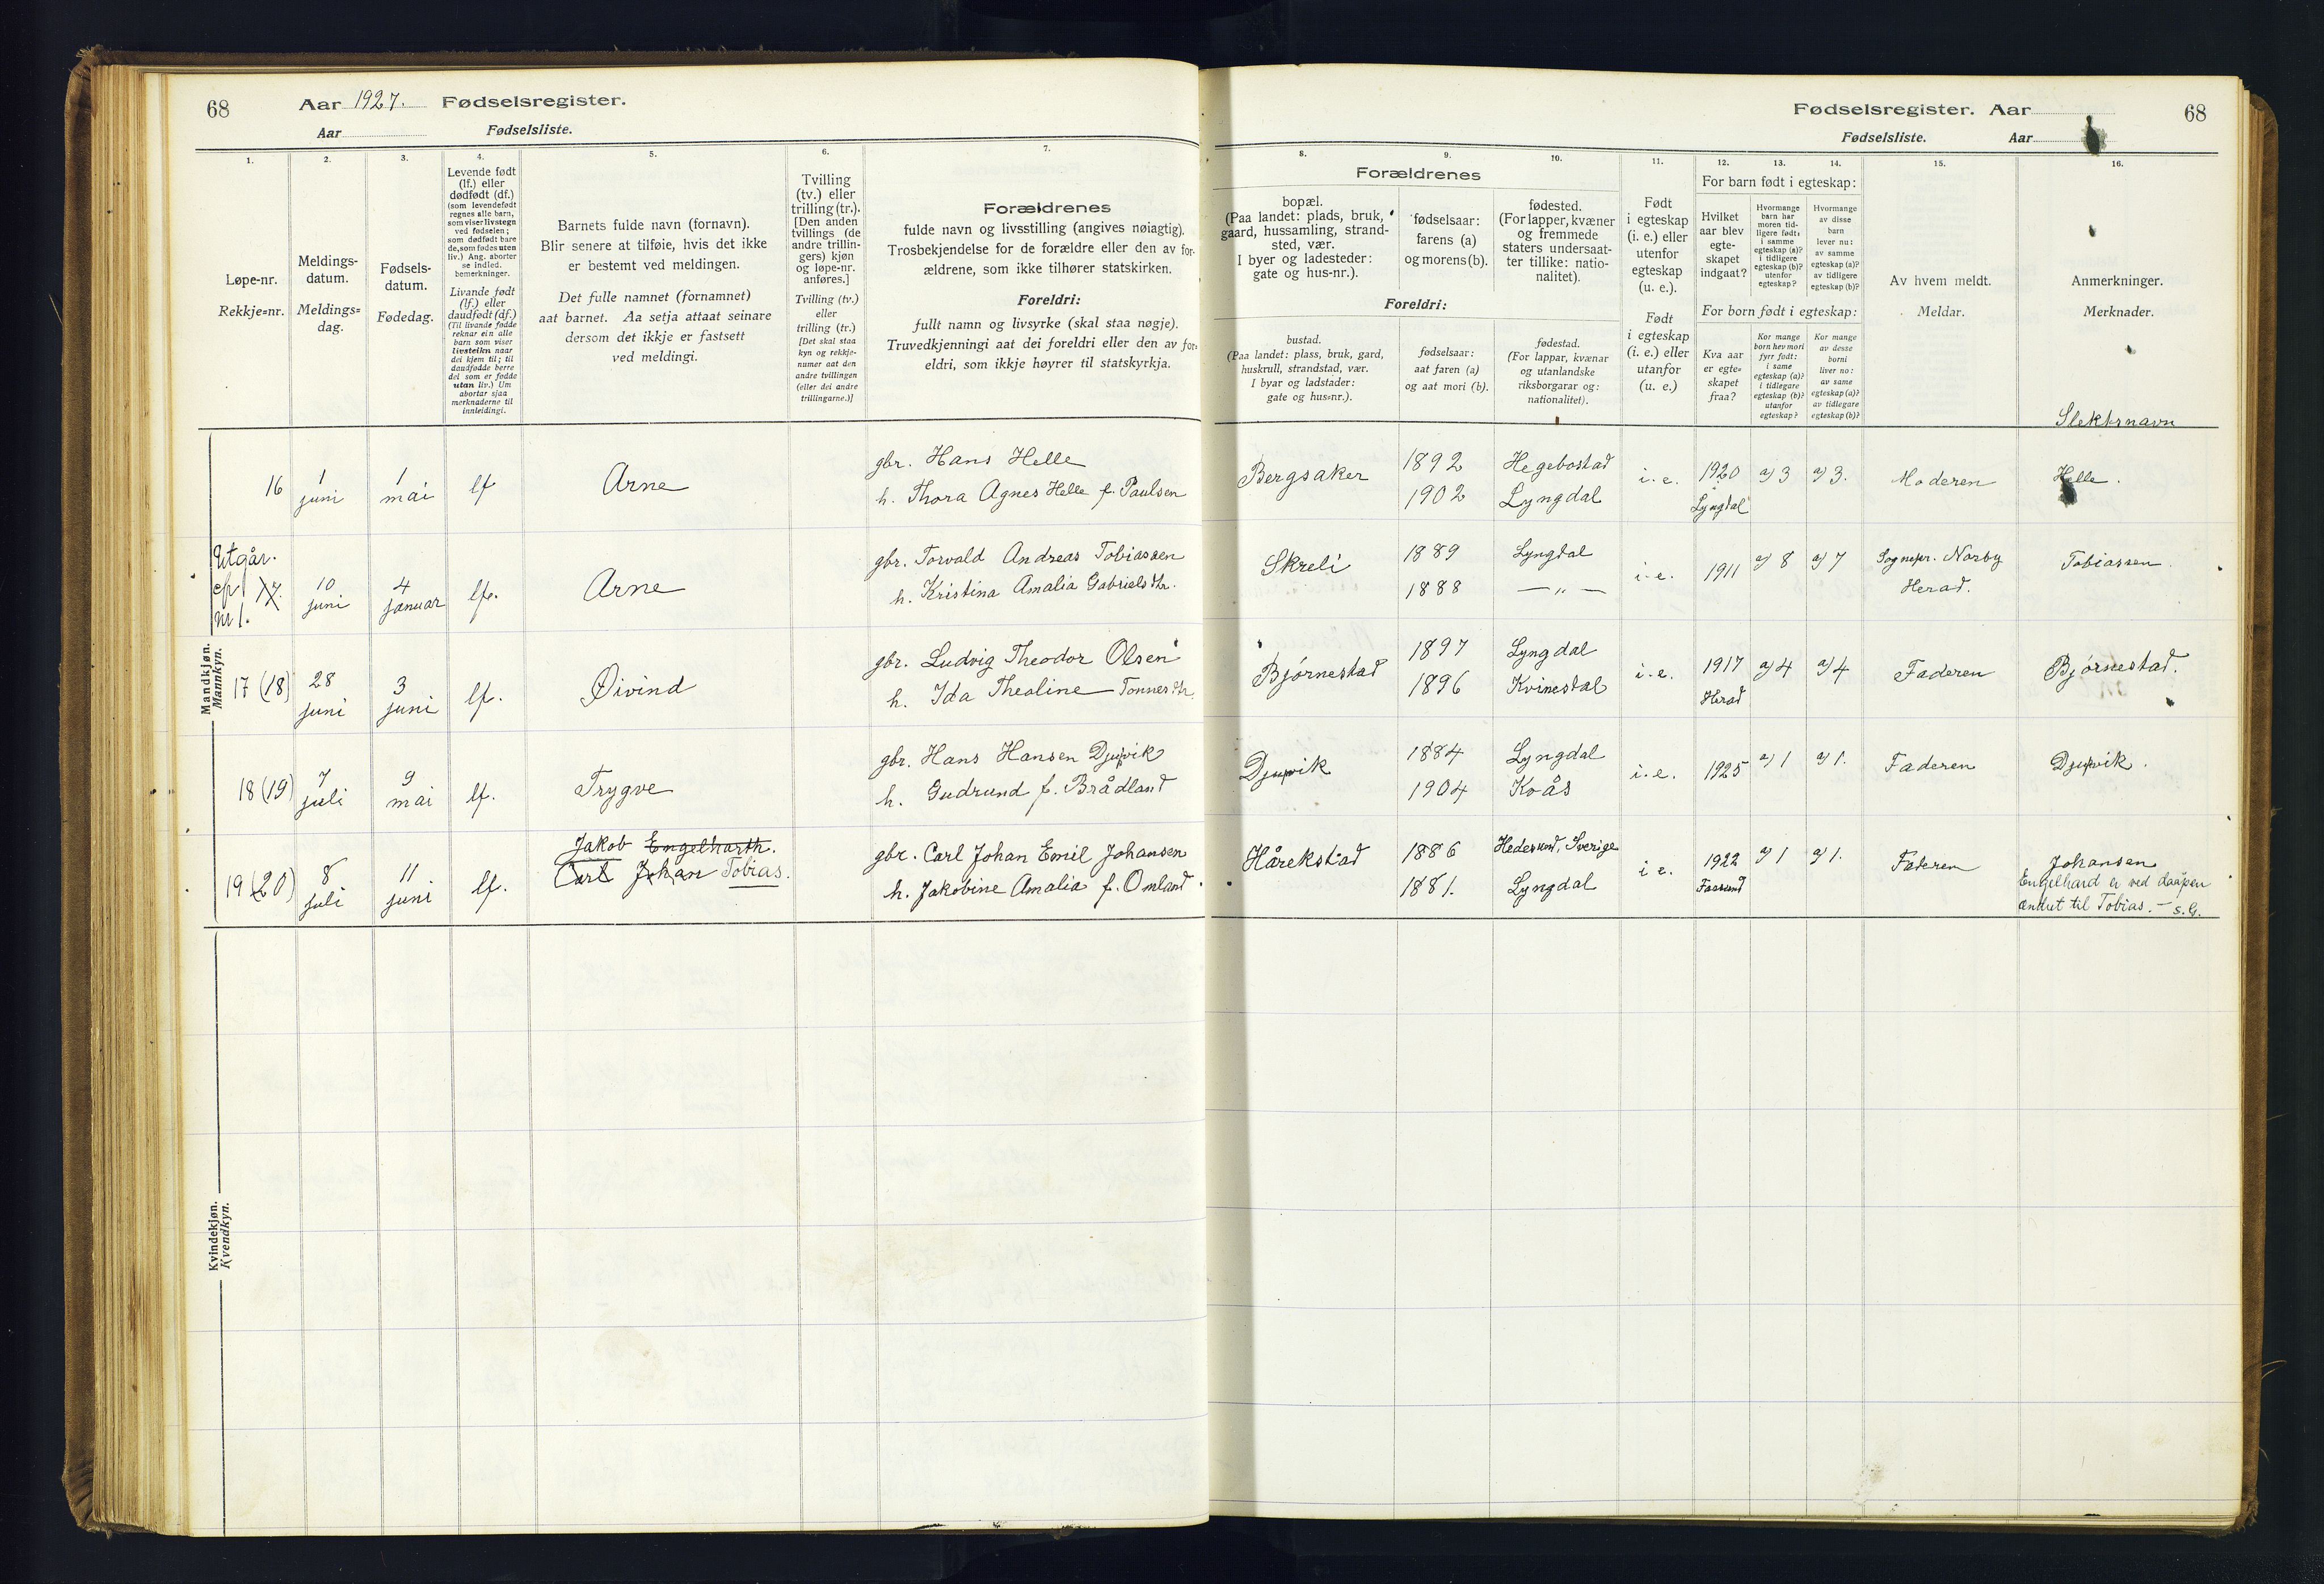 68 Aar 1927. Fødselsregister.
Aar Fødselsliste.
1.
Løpe-nr.
Rekkje=nr.
2.
Meldings-
datum.
Meldings=
dag.
3.
Fødsels-
datum.
Fødedag.
4.
Levende født
(lf.) eller
dødfødt (df.)
(som levendefødt
regnes alle barn,
som viser livstegn
ved fødselen;
som dødfødt bare
de, som fødes uten
liv.) Ang. aborter
se indled.
bemerkninger.
Livande født
(lf.) eller
daudfødt (df.)
(Til livande fødde
reknar ein alle
barn som viser
livsteikn naar
dei kjem til; til
daudfødde berre
dei som er fødde
utan liv.) Um
abortar sjaa
merknaderne til
innleidingi.
5.
Barnets fulde navn (fornavn).
Blir senere at tilføie, hvis det ikke
er bestemt ved meldingen.
Det fulle namnet (fornamnet)
aat barnet. Aa setja attaat seinare
dersom det ikkje er fastsett
ved meldingi.
6.
Tvilling
(tv.) eller
trilling (tr.).
[Den anden
tvillings (de
andre trillin-
gers) kjøn
og løpe-nr.
anføres.]
Tvilling (tv.)
eller
trilling (tr.)
[Det skal staa
kyn og rekkje-
numer aat den
andre tvillingen
(eller dei andre
trillingarne.)]
7.
Forældrenes
fulde navn og livsstilling (angives nøiagtig).
Trosbekjendelse for de forældre eller den av for-
ældrene, som ikke tilhører statskirken.
Foreldri:
fullt namn og livsyrke (skal staa nøgje).
Truvedkjenningi aat dei foreldri eller den av for-
eldri, som ikkje høyrer til statskyrkja.
Fødselsregister. Aar 68
Fødselsliste. Aar
Forældrenes
8.
bopæl.
(Paa landet: plads, bruk,
gaard, hussamling, strand-
sted, vær.
I byer og ladesteder:
gate og hus-nr.).
9.
fødselsaar:
farens (a)
og morens (b).
10.
fødested.
(For lapper, kvæner
og fremmede
staters undersaat-
ter tillike: natio-
nalitet).
Foreldri:
bustad.
(Paa landet: plass, bruk, gard,
huskrull, strandstad, vær.
I byar og ladstader:
gate og hus=nr.).
fødselsaar:
aat faren (a)
og aat mori (b).
fødestad.
(For lappar, kvænar
og utanlandske
riksborgarar og:
nationalitet).
11.
Født
i egteskap
(i. e.) eller
utenfor
egteskap
(u. e.).
Født
i egteskap
(i. e.) eller
utanfor
(u. e.)
12. 13. 14.
For barn født i egteskap:
Hvilket
aar blev
egte-
skapet
indgaat?
Hvormange
barn har
moren tid-
ligere født:
i samme
egteskap (a)?
i tidligere
egteskap (b)?
utenfor
egteskap?
Hvormange
av disse
barn
lever nu:
av samme
egteskap (a)?
av tidligere
egteskap (b)?
For born født i egteskap:
Kva aar
er egte=
skapet
fraa?
Kor mange
born hev mori
fyrr født:
i same
egteskap (a)?
i tidlegare
egteskap (b)?
utanfor
egteskap?
Kor mange
av desse
borni
liver no:
av same
egteskap (a)?
av tidlegare
egteskap (b)?
15.
Av hvem meldt.
Meldar.
16.
Anmerkninger.
Merknader.
Slektsnavn
Mandkjøn.
Mannkyn.
16 1 juni 1 mai lf Arne
gbr. Hans Helle
h. Thora Agnes Helle f. Paulsen
Bergsaker 1892 Hegebostad i. e. 1920 a) 3 a) 3. Moderen Helle.
1902 Lyngdal Lyngdal
Utgår.
cfr
nr 1. 10 juni 4 januar lf. Arne
gbr. Torvald Andreas Tobiassen
h. Kristina Amalia Gabrielsdtr.
Skreli 1889 Lyngdal i. e. 1911 a) 8 a) 7 Sognepr. Norby Tobiassen.
1888 — „ — Herad.
17 (18) 28 juni 3 juni lf. Øivind
gbr. Ludvig Theodor Olsen
h. Ida Thealine Tønnesdtr.
Bjørnestad 1897 Lyngdal i. e. 1917 a) 4 a) 4 Faderen Bjørnestad.
1896 Kvinesdal Herad
18 (19) 7 juli 9 mai lf. Trygve
gbr. Hans Hansen Djupvik
h. Gudrund f. Brådland
Djupvik 1884 Lyngdal i. e. 1925 a) 1 a) 1. Faderen Djupvik.
1904 Kvås
19 (20) 8 juli 11 juni lf.
Jakob Engelharth.
Carl Johan Tobias.
gbr. Carl Johan Emil Johansen
h. Jakobine Amalia f. Omland
Hårekstad 1886 Hedesund, Sverige i e. 1922 a) 1 a) 1. Faderen Johansen
1881. Lyngdal Farsund
Engelhard er ved daapen
endret til Tobias. — S. G.
Kvindekjøn.
Kvendkyn.